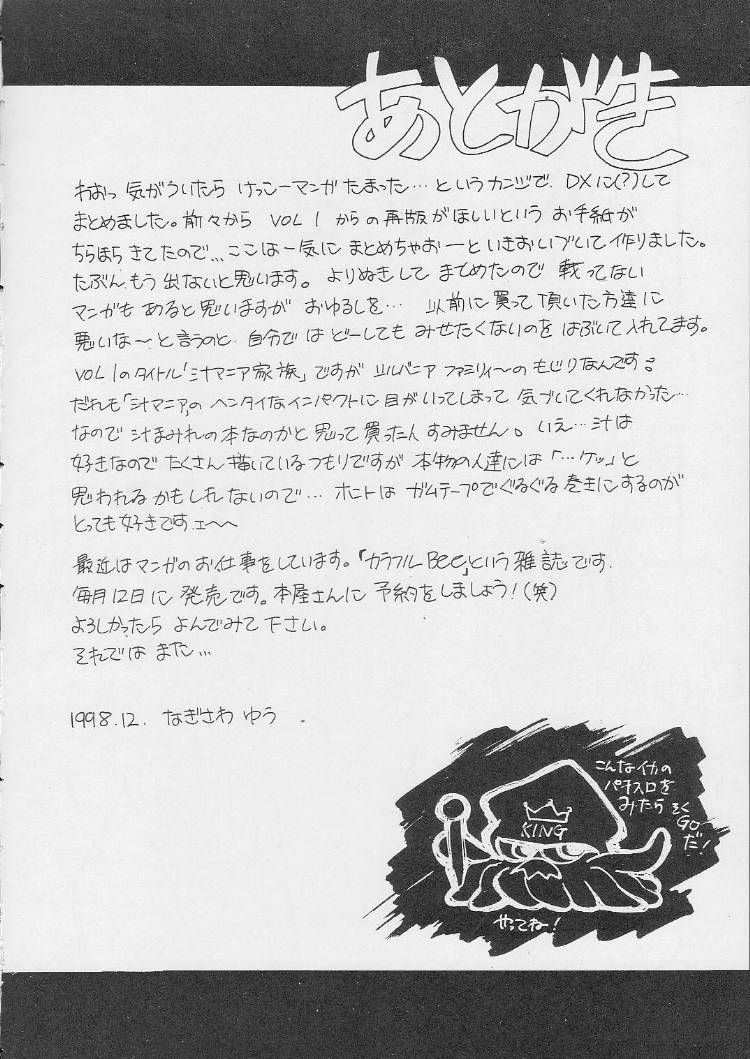 あとがき
わおっ 気がついたら けっこーマンガ たまった…というカンジで、DXに(?)して
まとめました。前々から VOL 1 からの再版がほしいという お手紙が
ちらほら きてたので… ここは一気に まとめちゃおーと いきおいづいて作りました。
たぶん もう 出ないと思います。よりぬきして まとめたので 載ってない
マンガも あると思いますが おゆるしを… 以前に買って頂いた方達に
悪いな～と言うのと、自分では どーしても みせたくないのを はぶいて入れてます。
VOL 1のタイトル「汁マニア家族」ですが シルバニア ファミリィーの もじりなんです。
だれも「汁マニア」の ヘンタイなインパクトに目がいってしまって 気づいてくれなかった…
なので汁まみれの本なのかと思って買った人 すみません。いえ…汁は
好きなので たくさん描いているつもりですが 本物の人達には「…ケッ」と
思われるかもしれないので… ホントは ガムテープでぐるぐる巻きにするのが
とっても好きですェ～～
最近はマンガのお仕事をしています。「カラフルBee」という雑誌です.
毎月12日に発売です。本屋さんに予約をしましょう!(笑)
よろしかったら よんでみて下さい。
それでは また…
1998.12. なぎさわ ゆう .
こんなイカの
パチスロを
みたら そく
GO
だ!
KING
やってね!